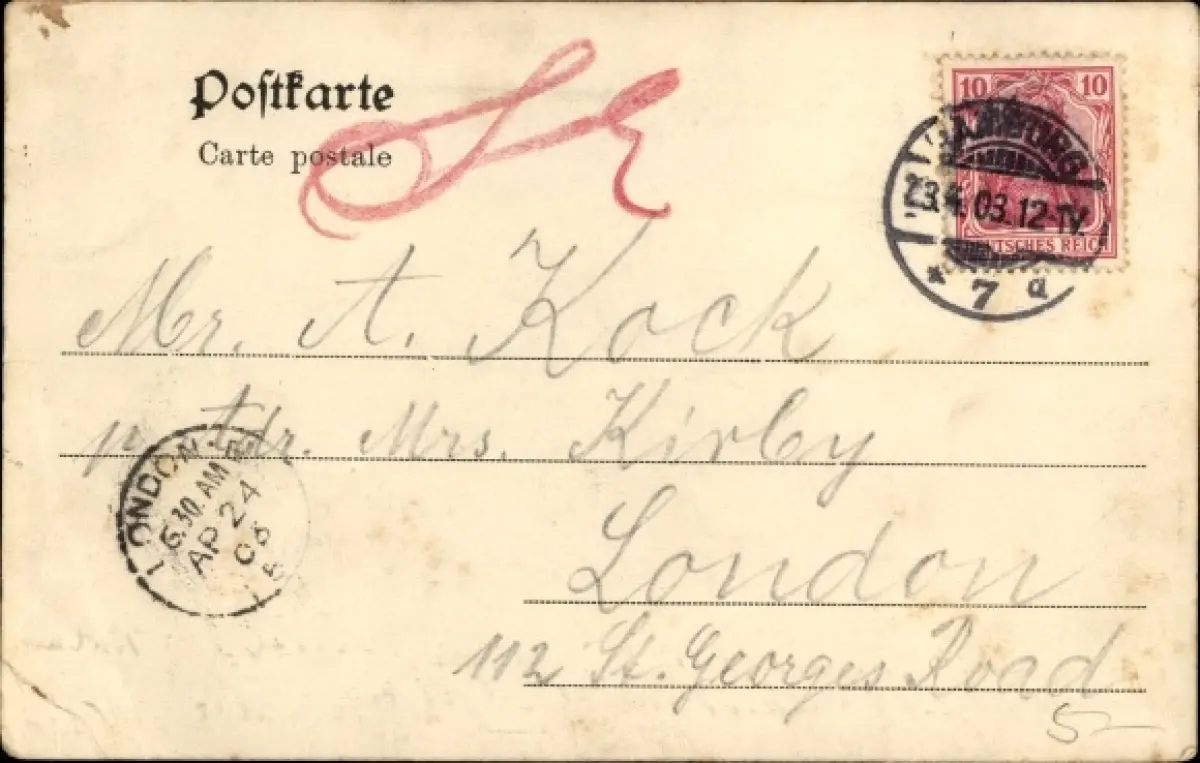 Postkarte
Carte postale
10 10
HAMBURG
23.4.03.12-1V.
DEUTSCHES REICH
* 7 d
Mr. A. Kock
p. Adr. Mrs. Kirby
LONDON
6.30 AM
AP 24
03
London
112 St. Georges Road
5-